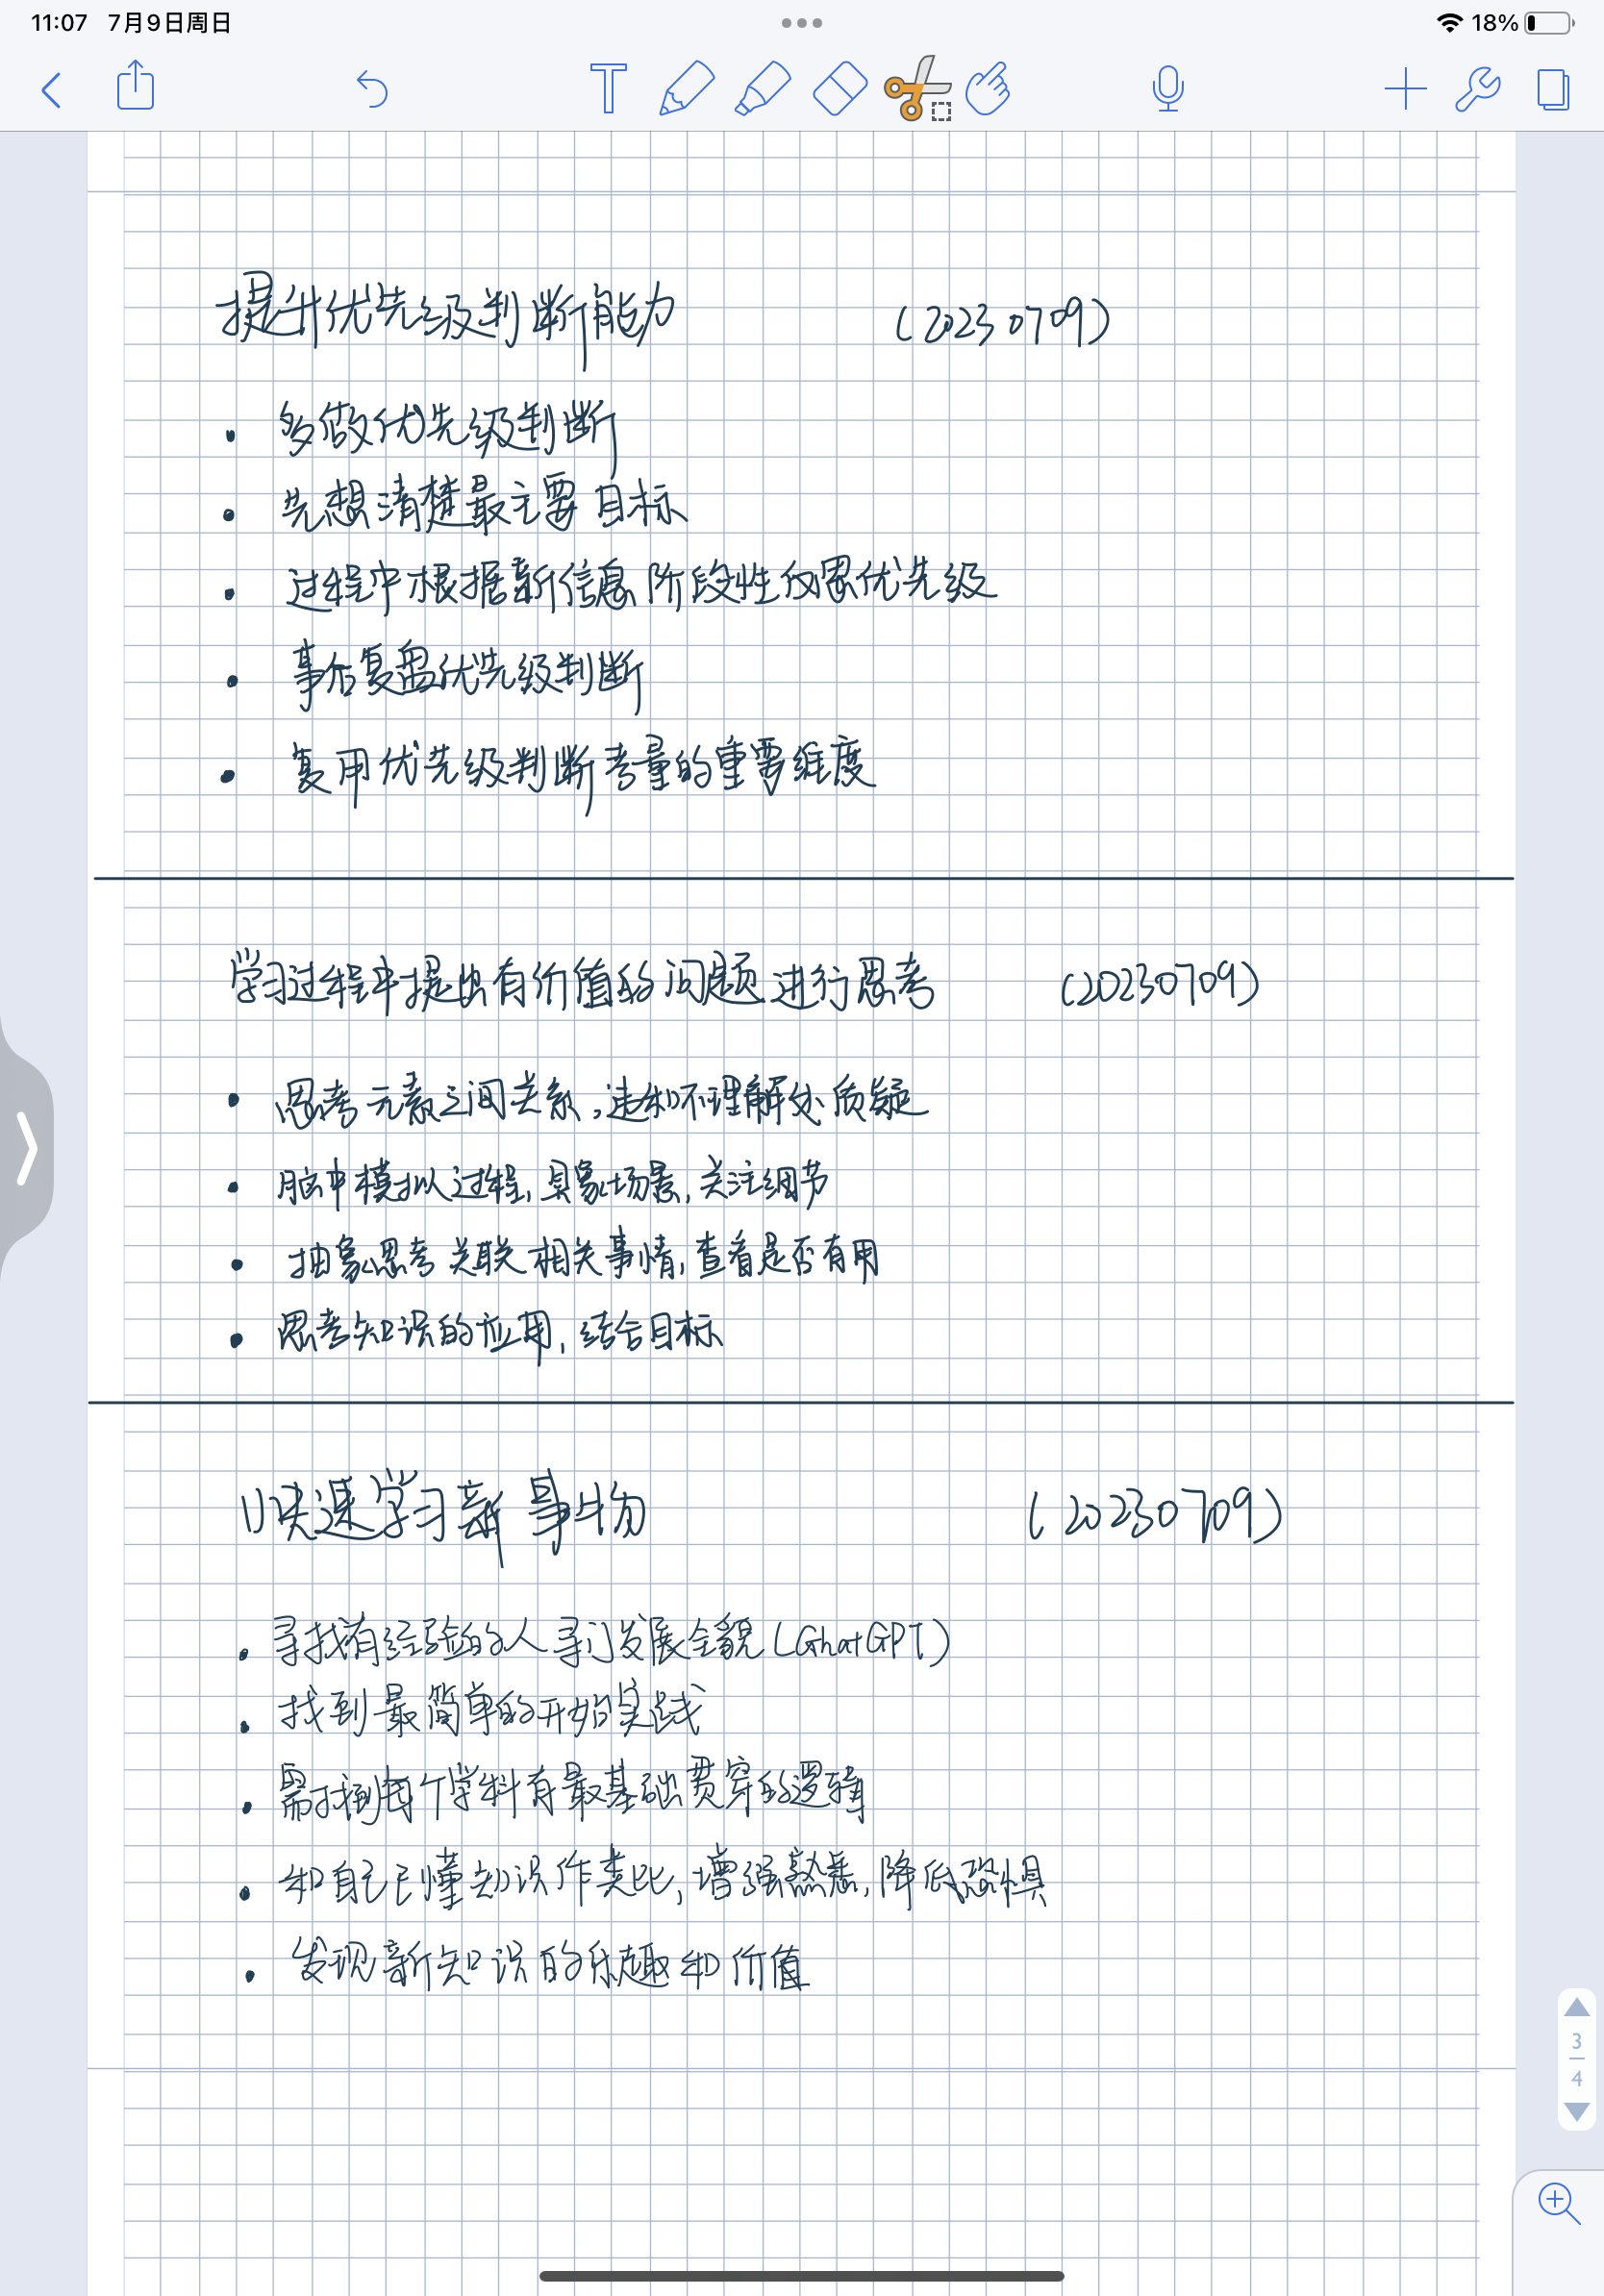 11:07 7月9日周日
18%
提升优先级判断能力 (20230709)
• 多做优先级判断
• 先想清楚最主要目标
• 过程中根据新信息阶段性反思优先级
• 事后复盘优先级判断
• 复用优先级判断考量的重要维度
学习过程中提出有价值的问题进行思考 (20230709)
• 思考元素之间关系,违和不理解处质疑
• 脑中模拟过程,具象场景,关注细节
• 抽象思考关联相关事情,查看是否有用
• 思考知识的应用,结合目标
快速学习新事物 (20230709)
• 寻找有经验的人 发展全貌(ChatGPT)
• 找到最简单的开始实践
• 需找到每个学科有最基础贯穿的逻辑
• 和自己已懂知识作类比,增强熟悉,降低恐惧
• 发现新知识的乐趣和价值
3
4